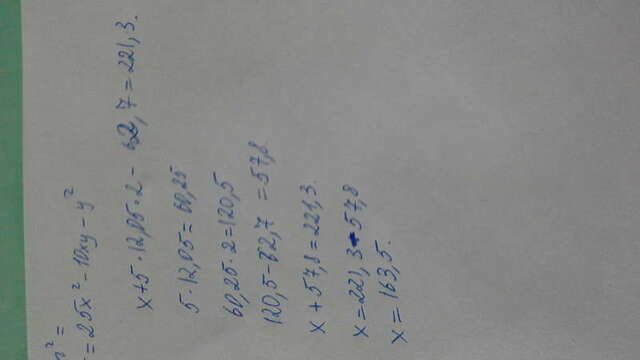 ² =
= 25x² - 10xy - y²
x + 5 · 12,05 · 2 - 62,7 = 221,3.
5 · 12,05 = 60,25
60,25 · 2 = 120,5
120,5 - 62,7 = 57,8
x + 57,8 = 221,3.
x = 221,3 - 57,8
x = 163,5.